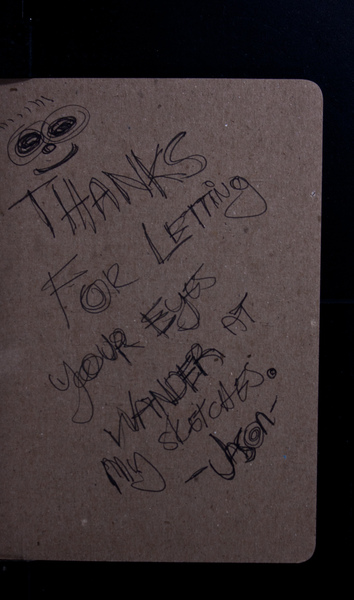 THANKS
FOR LETTING
YOUR EYES
WANDER AT
MY SKETCHES.
-JASON-